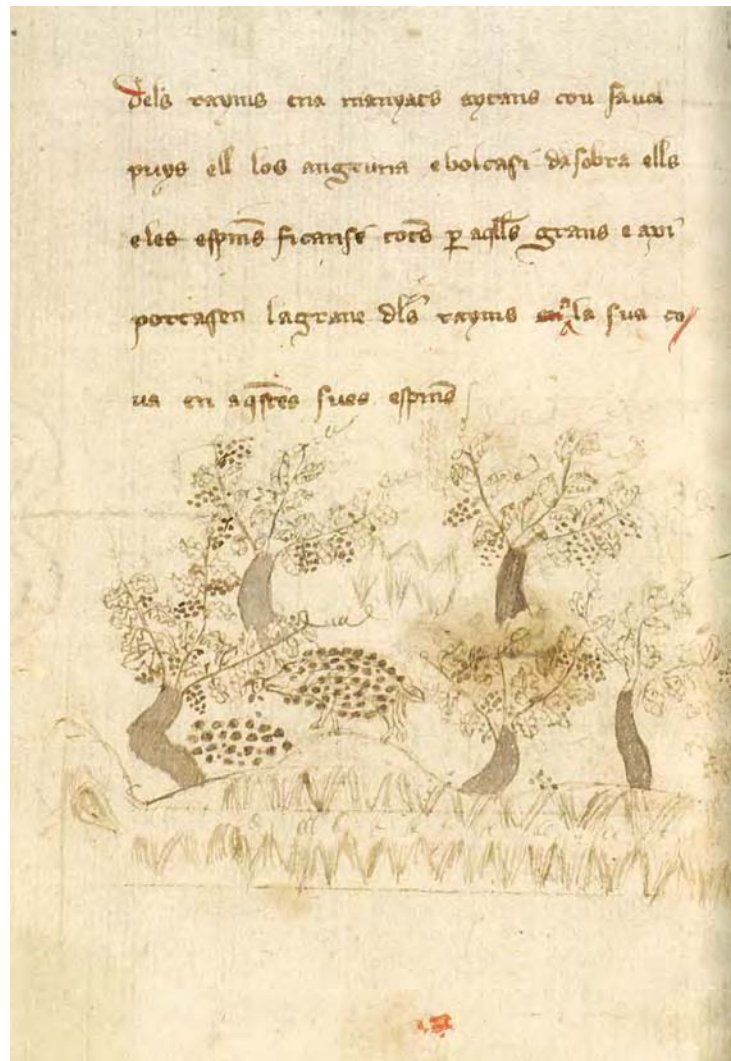 dels rayms ena manyats aytans con fa uol
puys ell los angruna e bolcasi da sobra ells
e les espins ficanse tots p aqlls grans e axi
portasen la grane dls rayms a la sua co
ua en aqstes sues espins